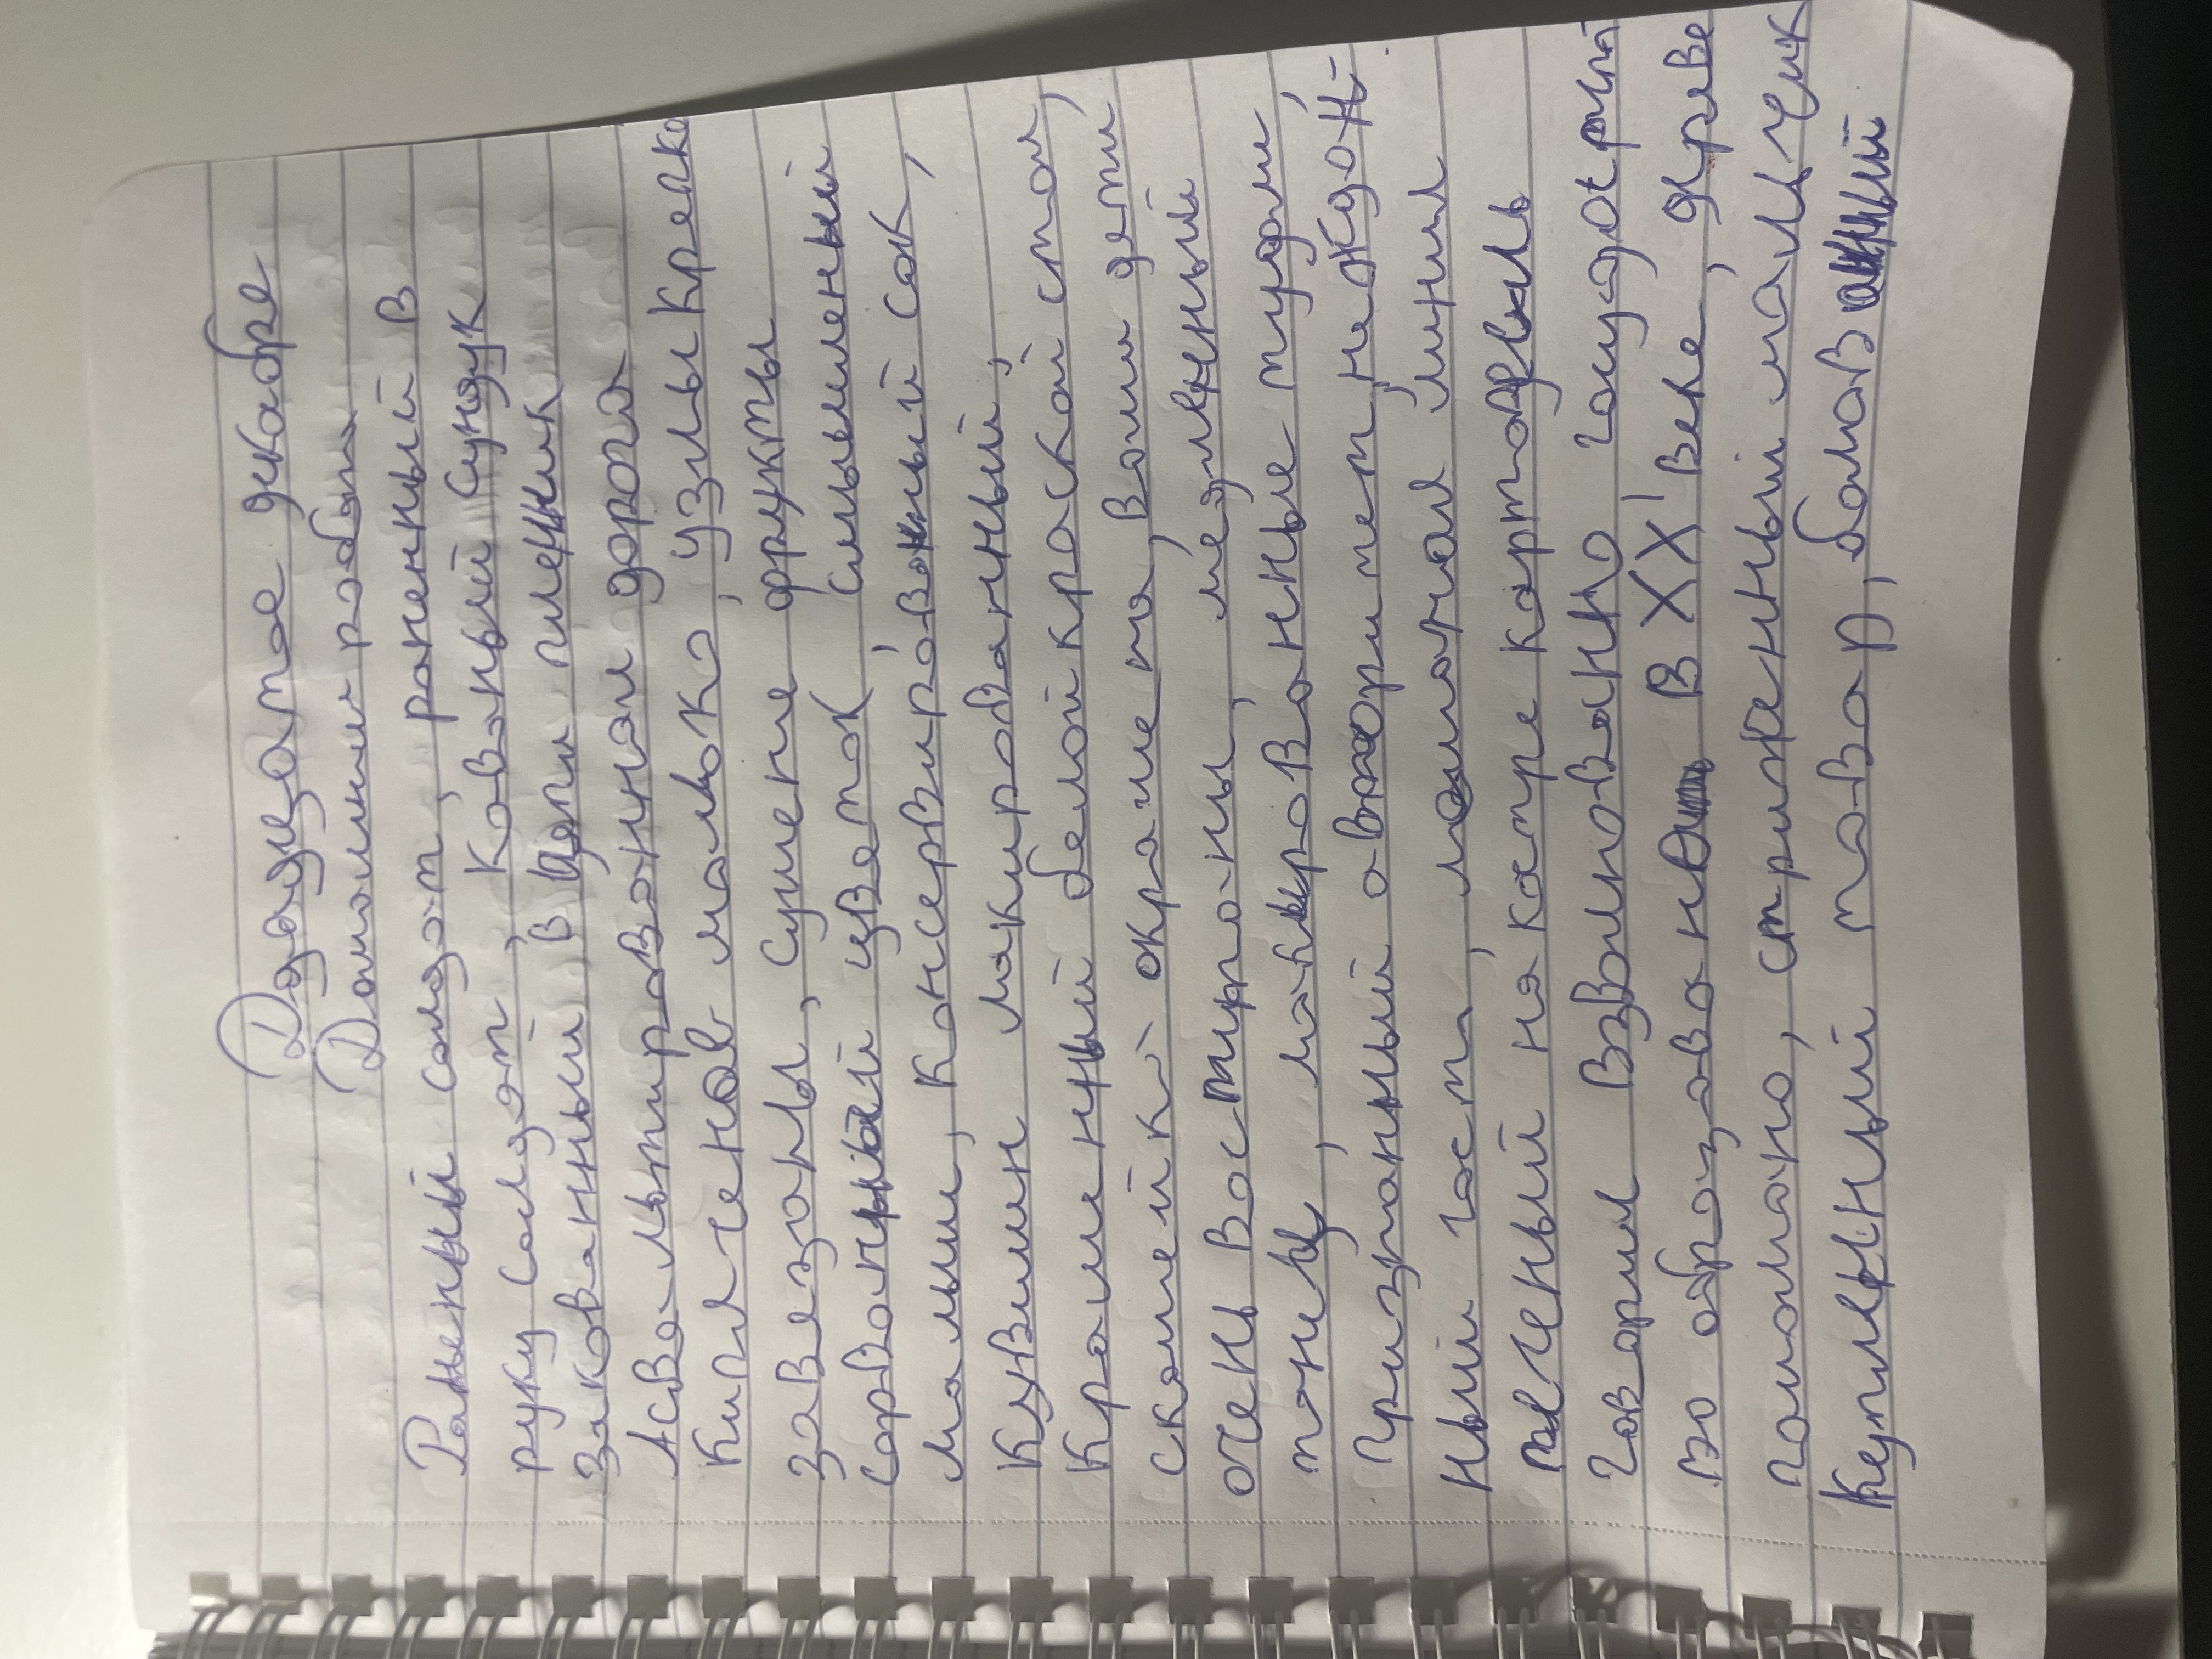 Дадцатое декабре
Домошни робота
Раненый солдат, раненный в
руку солдат, кованый сундук
закованный в цепи пленик
Асвальтированная дорога
кипеченое малоко, узлы крепко
завезаны, сушене фрукты
сорваный цветок, смышленый
малыш, консервированый сок,
кувшин лакированый,
крашенный белой краской стол,
скамейка окрашена, воши дети
очень воспитаны, медленный
танец, лакированные туфли,
признаный авторитет, неждон-
ный гость, ломаная линия
печеный на катре картофель
говорил взволнованно государтм
во образовано в XXI веке, дерево
поломано, стриженный мальчик
купленный товар, балованый